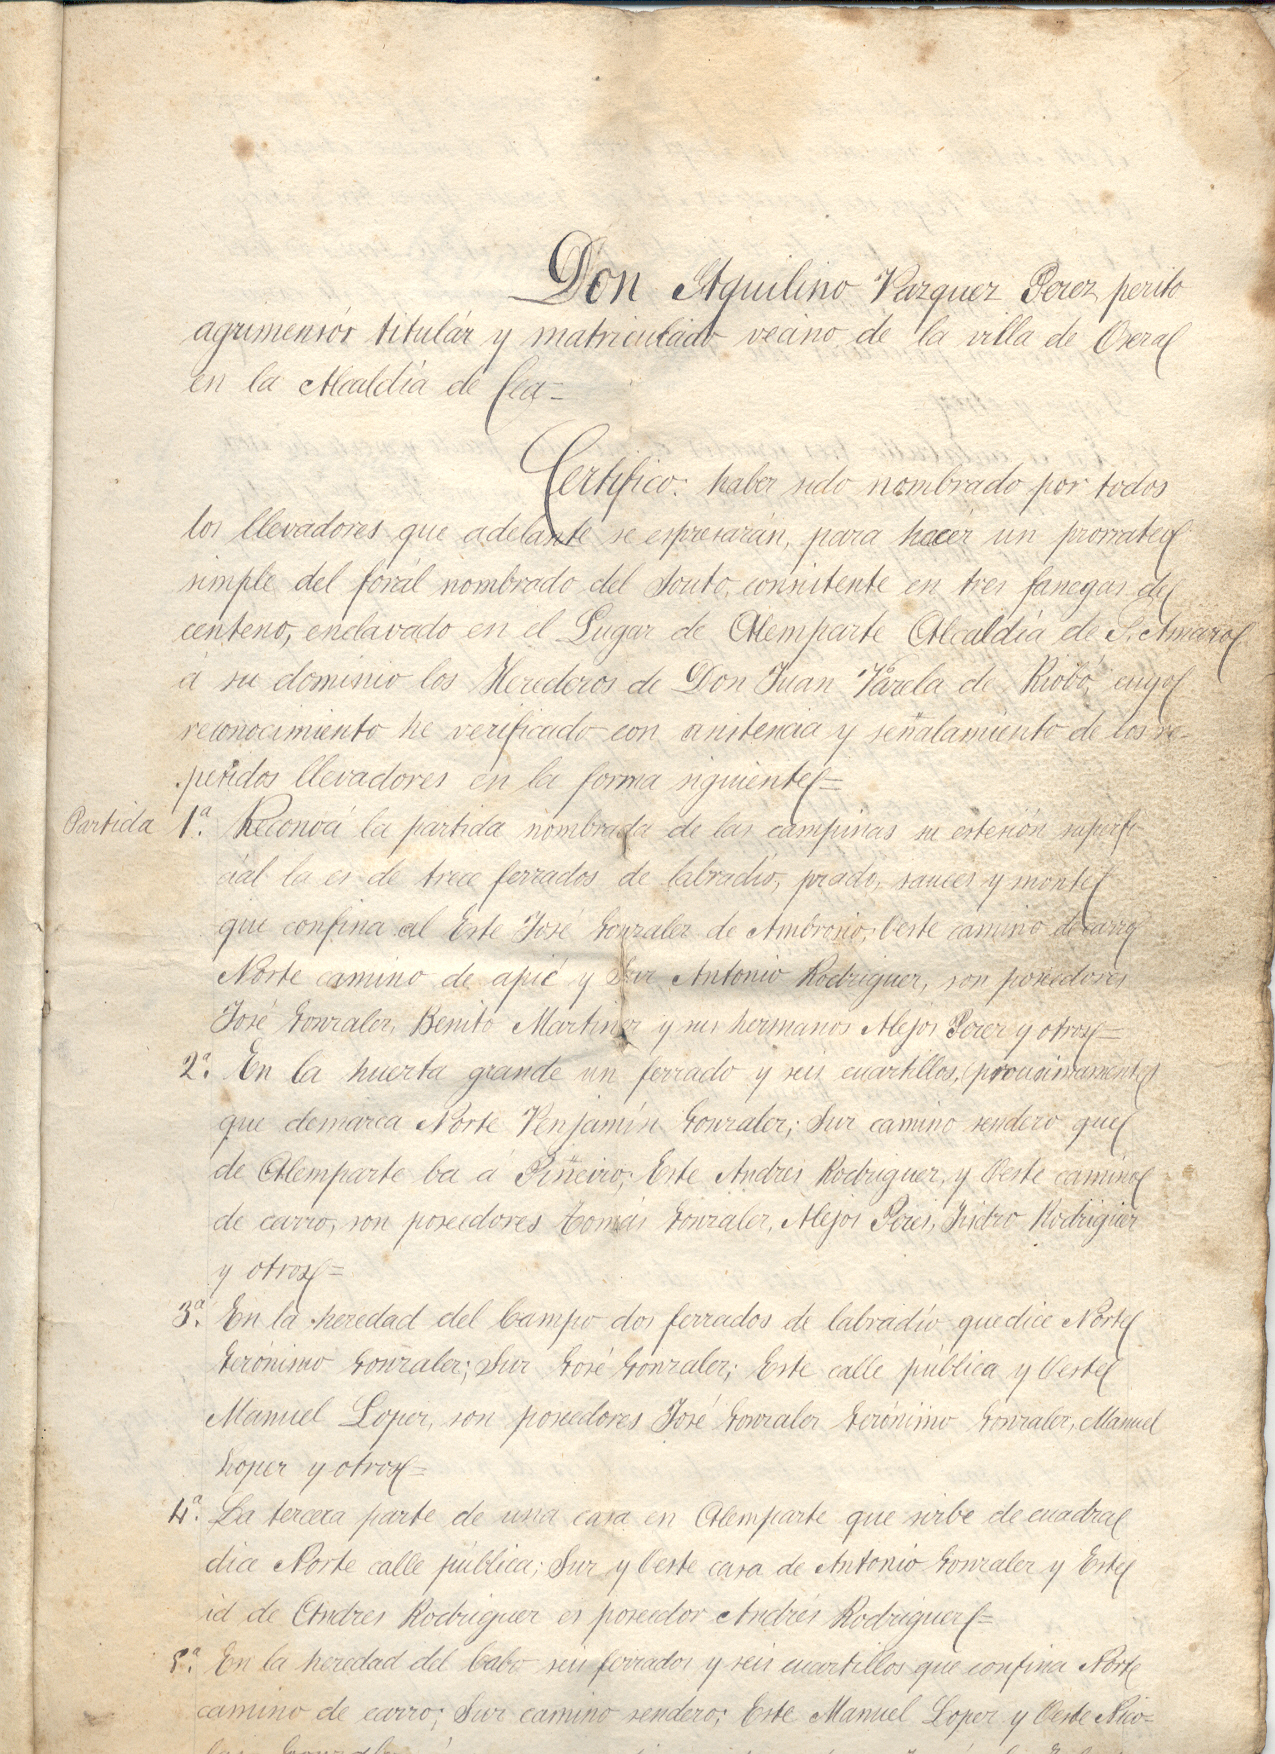 Don Aquilino Vazquez Perez, perito
agrimensór titulár y matriculado vecino de la villa de Osera
en la Alcaldía de Cea=
Certifico: haber sido nombrado por todos
los llevadores que adelante se espresarán, para hacér un prorrateo
simple del forál nombrado del Souto, consistente en tres fanegas de
centeno, enclavado en el Lugar de Alemparte Alcaldía de S. Amaro
á su dominio los Herederos de Don Juan Varela de Riobó, cuyo
reconocimiento he verificado con asistencia y señalamiento de los re-
petidos llevadores en la forma siguiente=
Partida 1ª. Reconocí la partida nombrada de las campinas su estesión superfi-
ciál la es de trece ferrados de labradío, prado, sauces y monte
que confina al Este José Gonzalez de Ambrosio, Oeste camino de carro
Norte camino de apié y Sur Antonio Rodriguez, son poseedores
José Gonzalez, Benito Martinez y sus hermanos Alejos Perez y otros=
2ª. En la huerta grande un ferrado y seis cuartillos, procsimamente
que demarca Norte Venjamín Gonzalez; Sur camino sendero que
de Alemparte ba á Piñeiro; Este Andrés Rodriguez, y Oeste camino
de carro, son poseedores Tomás Gonzalez, Alejos Peres, Isidro Rodriguez
y otros=
3ª. En la heredad del Campo dos ferrados de labradío que dice Norte
Gerónimo Gonzalez; Sur José Gonzalez; Este calle pública y Oeste
Manuel Lopez, son poseedores José Gonzalez Gerónimo Gonzalez, Manuel
Lopez y otros=
4ª. La tercera parte de una casa en Alemparte que sirbe de cuadra
dice Norte calle pública; Sur y Oeste casa de Antonio Gonzalez y Este
id de Andres Rodriguez es poseedor Andrés Rodriguez=
5ª. En la heredad del Cabo seis ferrados y seis cuartillos que confina Norte
camino de carro; Sur camino sendero; Este Manuel Lopez y Oeste Nico=
las Gonzalez